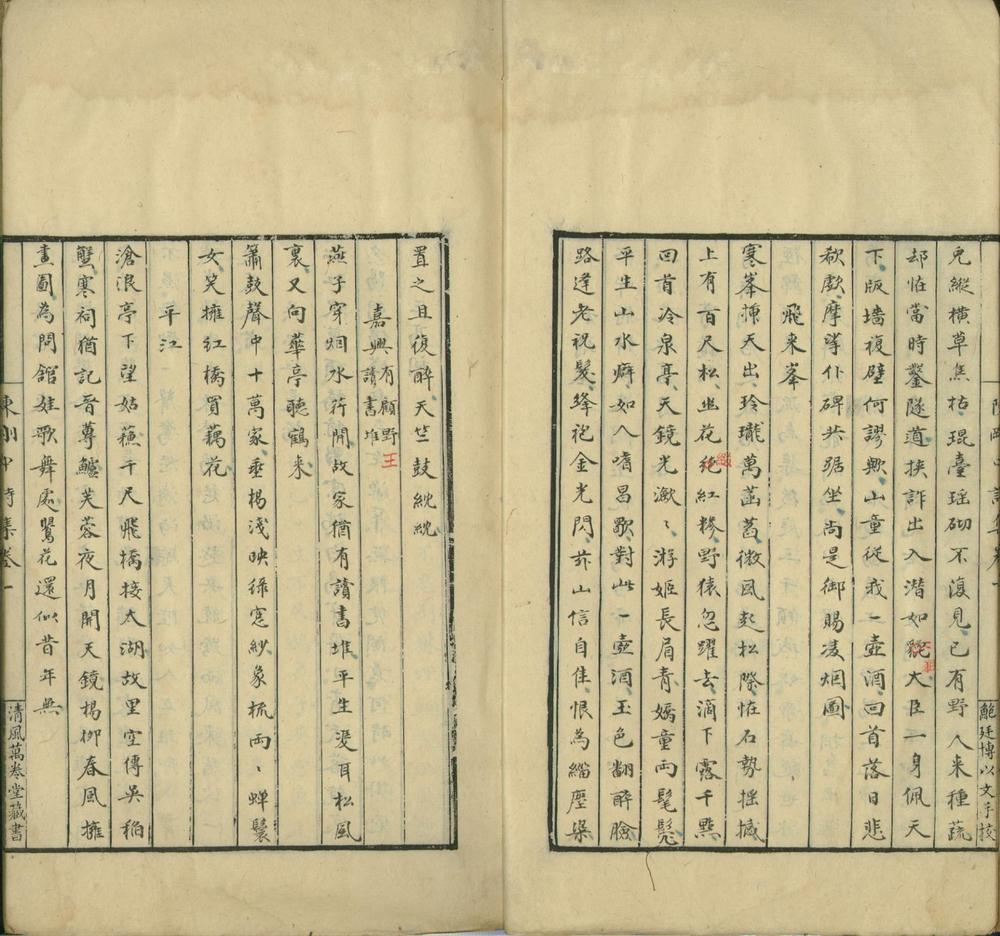 兎縱橫草焦枯琨臺瑶砌不復見已有野人来種蔬
却怪當時鑿隧道挟詐出入潜如大臣一身佩天
下版墙複壁何謬欺山童従我一壺酒回首落日悲
欷歔摩挲仆碑共踞坐尚是御賜凌烟圖
飛来峯
寒峯揷天出玲瓏萬菡萏微風起松際怪石勢揺撼
上有百尺松幽花絶紅糝野猿忽躍去滴下露千㸃
回首冷泉亭天鏡光潋〻游姬長眉青嬌童両髦髧
平生山水癖如人嗜昌歜對此一壺酒玉色翻醉臉
路逢老祝髮絳袍金光閃兹山信自佳恨為緇塵染
鮑廷博以文手校
置之且復醉天竺鼓紞紞
嘉興有顧野讀書堆
王
燕子穿烟水荇開故家猶有讀書堆平生浸耳松風
裏又向華亭聽鶴来
簫鼓聲中十萬家垂楊淺映绿窓紗象梳両〻蟬鬟
女笑擁红橋買藕花
平江
滄浪亭下望姑蘇千尺飛橋接太湖故里空傳吳稻
蟹寒祠猶記晋蓴鱸芙蓉夜月開天鏡楊柳春風擁
畫圖為問舘娃歌舞處鸎花還似昔年無
陳剛中詩集卷一
清風萬卷堂藏書